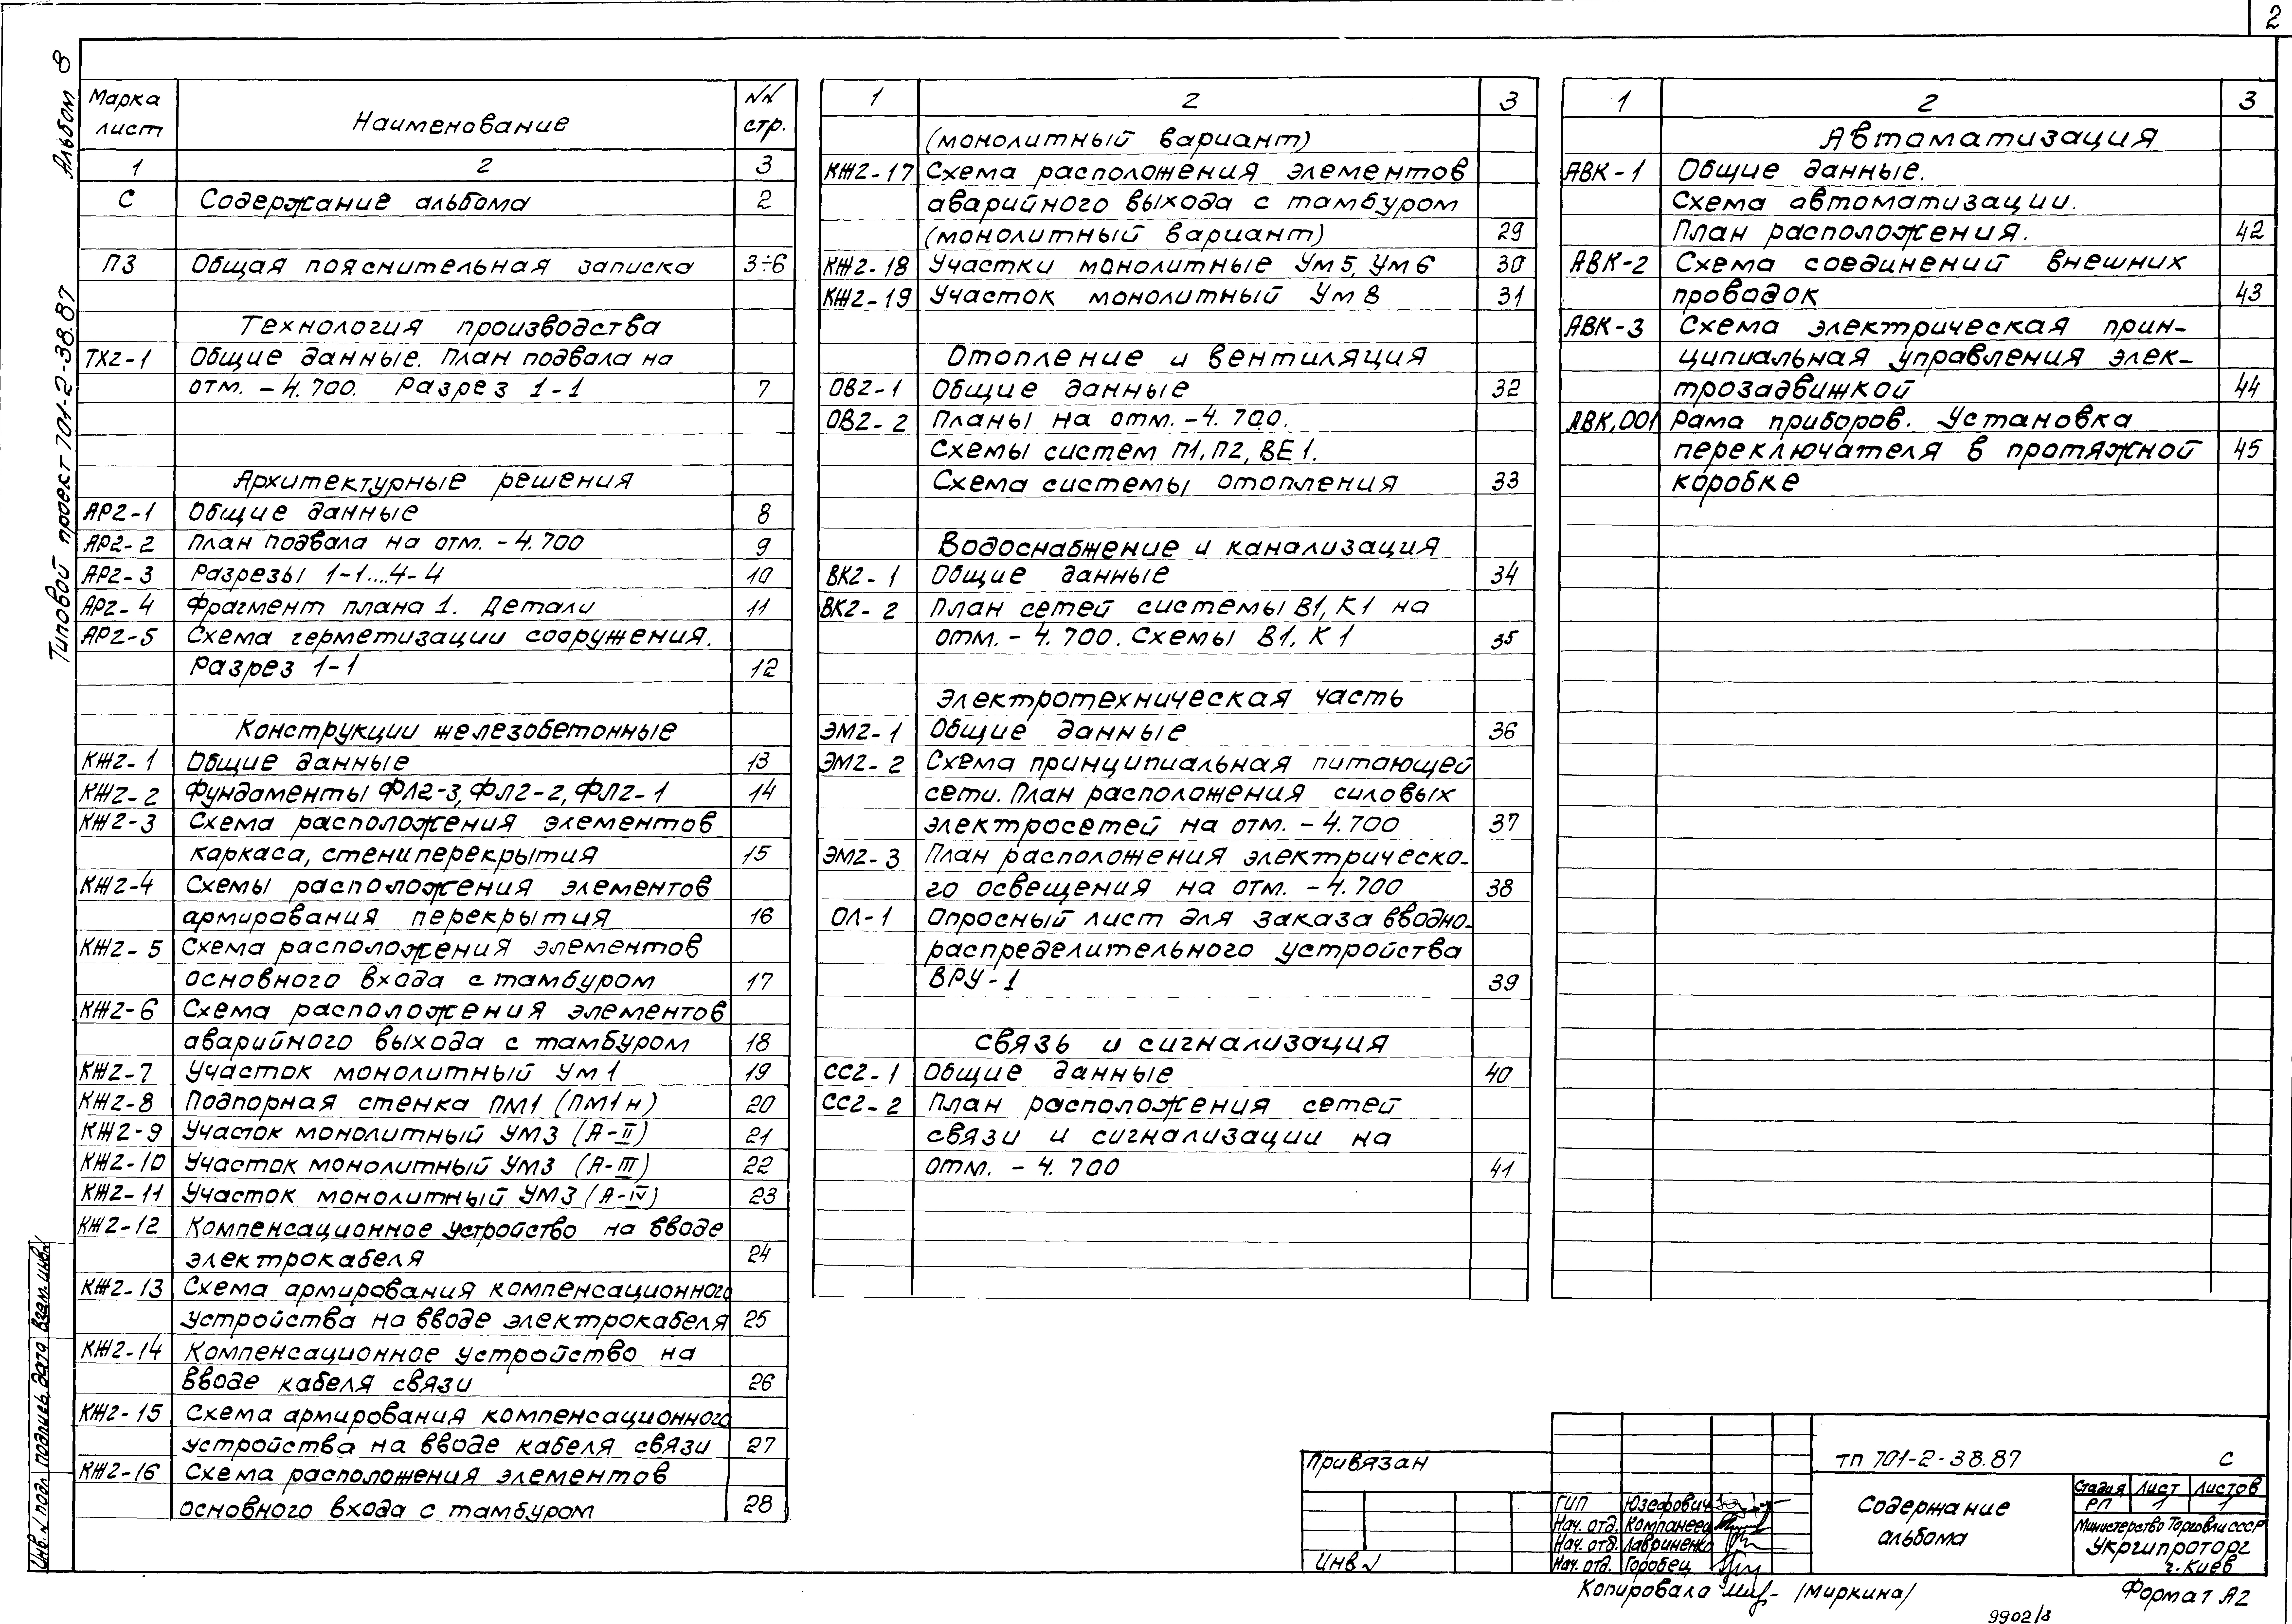 2
Альбом 8
Типовой проект 701-2-38.87
Инв. N подл Подпись, дата Взам. инв. N
Марка лист Наименование NN стр.
1 2 3
С Содержание альбома 2
ПЗ Общая пояснительная записка 3÷6
Технология производства
ТХ2-1 Общие данные. План подвала на
отм. -4.700. Разрез 1-1 7
Архитектурные решения
АР2-1 Общие данные 8
АР2-2 План подвала на отм. -4.700 9
АР2-3 Разрезы 1-1...4-4 10
АР2-4 Фрагмент плана 1. Детали 11
АР2-5 Схема герметизации сооружения.
Разрез 1-1 12
Конструкции железобетонные
КЖ2-1 Общие данные 13
КЖ2-2 Фундаменты ФЛ2-3, ФЛ2-2, ФЛ2-1 14
КЖ2-3 Схема расположения элементов
каркаса, стен и перекрытия 15
КЖ2-4 Схемы расположения элементов
армирования перекрытия 16
КЖ2-5 Схема расположения элементов
основного входа с тамбуром 17
КЖ2-6 Схема расположения элементов
аварийного выхода с тамбуром 18
КЖ2-7 Участок монолитный Ум1 19
КЖ2-8 Подпорная стенка ПМ1 (ПМ1н) 20
КЖ2-9 Участок монолитный УМ3 (А-II) 21
КЖ2-10 Участок монолитный УМ3 (А-III) 22
КЖ2-11 Участок монолитный УМ3 (А-IV) 23
КЖ2-12 Компенсационное устройство на вводе
электрокабеля 24
КЖ2-13 Схема армирования компенсационного
устройства на вводе электрокабеля 25
КЖ2-14 Компенсационное устройство на
вводе кабеля связи 26
КЖ2-15 Схема армирования компенсационного
устройства на вводе кабеля связи 27
КЖ2-16 Схема расположения элементов
основного входа с тамбуром 28
1 2 3
(монолитный вариант)
КЖ2-17 Схема расположения элементов
аварийного выхода с тамбуром
(монолитный вариант) 29
КЖ2-18 Участки монолитные Ум5, Ум6 30
КЖ2-19 Участок монолитный Ум8 31
Отопление и вентиляция
ОВ2-1 Общие данные 32
ОВ2-2 Планы на отм. -4.700.
Схемы систем П1, П2, ВЕ1.
Схема системы отопления 33
Водоснабжение и канализация
ВК2-1 Общие данные 34
ВК2-2 План сетей системы В1, К1 на
отм. -4.700. Схемы В1, К1 35
Электротехническая часть
ЭМ2-1 Общие данные 36
ЭМ2-2 Схема принципиальная питающей
сети. План расположения силовых
электросетей на отм. -4.700 37
ЭМ2-3 План расположения электрическо-
го освещения на отм. -4.700 38
ОЛ-1 Опросный лист для заказа вводно-
распределительного устройства
ВРУ-1 39
Связь и сигнализация
СС2-1 Общие данные 40
СС2-2 План расположения сетей
связи и сигнализации на
отм. -4.700 41
1 2 3
Автоматизация
АВК-1 Общие данные.
Схема автоматизации.
План расположения. 42
АВК-2 Схема соединений внешних
проводок 43
АВК-3 Схема электрическая прин-
ципиальная управления элек-
трозадвижкой 44
АВК.001 Рама приборов. Установка
переключателя в протяжной 45
коробке
Привязан
Инв N
ГИП Юзефович
Нач. отд. Компанеец
Нач. отд. Лавриненко
Нач. отд. Горобец
ТП 701-2-38.87 С
Содержание
альбома
Стадия Лист Листов
РП 1 1
Министерство Торговли СССР
Укргипроторг
г. Киев
Копировала /Миркина/
Формат А2
9902/8